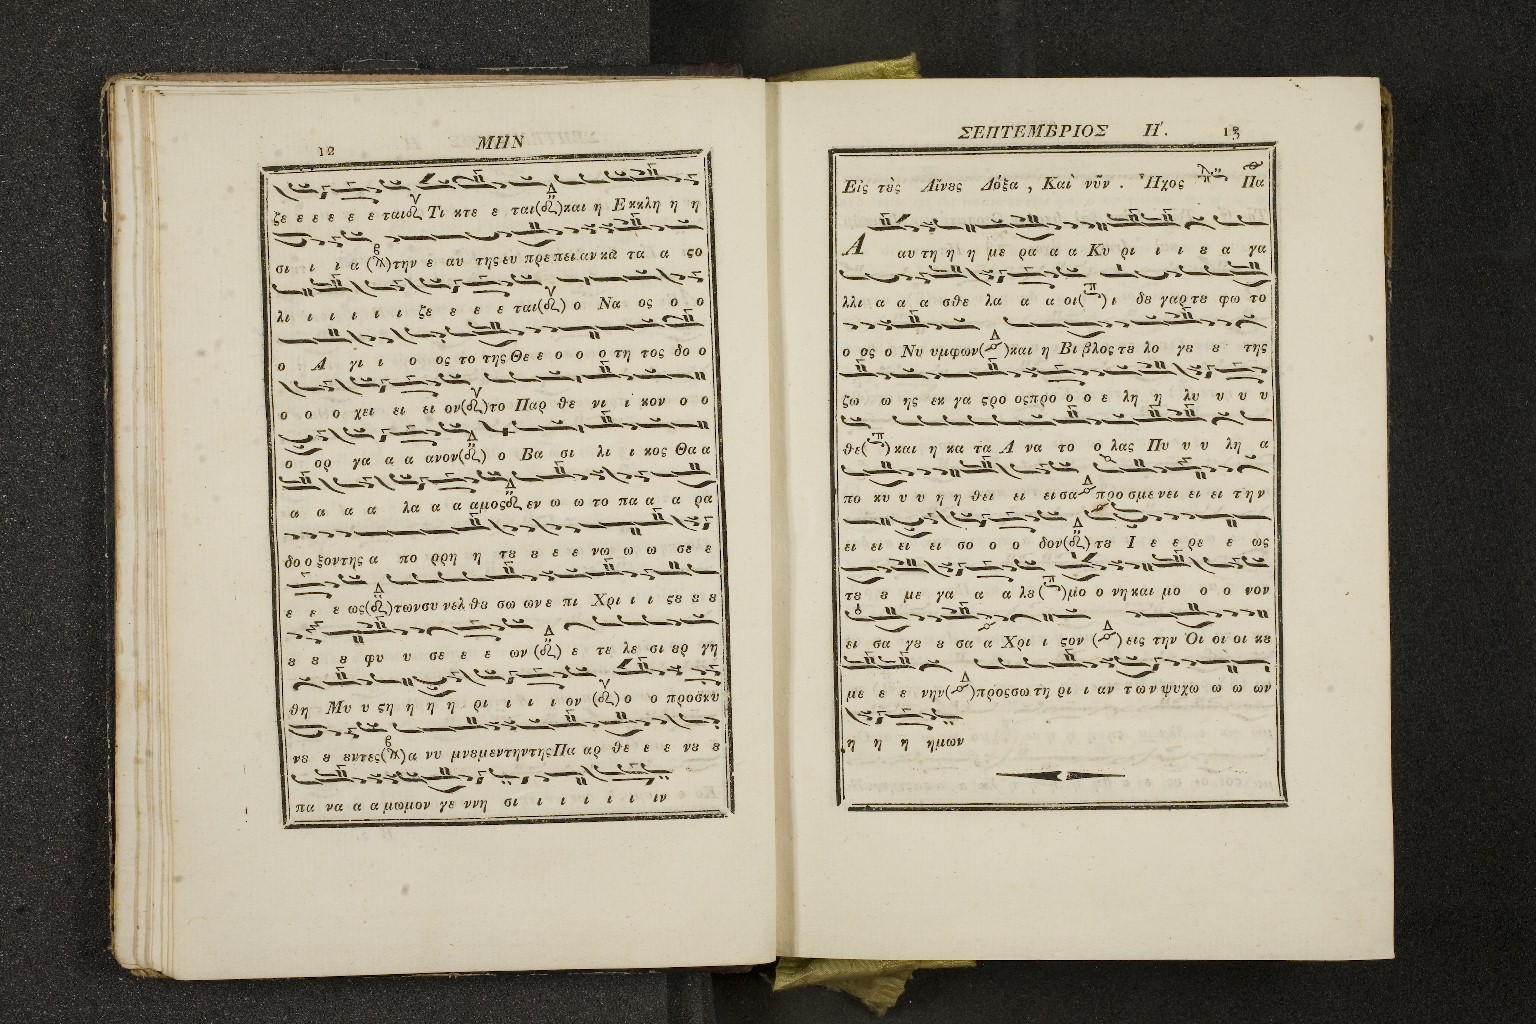 12 ΜΗΝ
ζε ε ε ε ε ε ται Τι κτε ε ται και η Εκκλη η η
σι ι ι α την ε αυ της ευ πρε πει αν κȣ τα α ϛο
λι ι ι ι ι ι ζε ε ε ε ται ο Να ος ο ο
ο Α γι ι ο ος το της Θε ε ο ο ο τη τος δο ο
ο ο ο χει ει ει ον το Παρ θε νι ι κον ο ο
ο ορ γα α α ανον ο Βα σι λι ι κος Θα α
α α α α λα α α αμος εν ω ω το πα α α ρα
δο ο ξον της α πο ρρη η τȣ ȣ ε ε νω ω ω σε ε
ε ε ε ως των συ νελ θȣ σω ων ε πι Χρι ι ι ϛȣ ȣ ȣ
ȣ ȣ ȣ φυ υ σε ε ε ων ε τε λε σι ȣρ γη
θη Μυ υ ϛη η η η ρι ι ι ι ον ο ο προσκυ
νȣ ȣ ȣντες α νυ μνȣμεν την της Πα αρ θε ε ε νȣ ȣ
πα να α α μωμον γε ννη σι ι ι ι ι ι ιν
ΣΕΠΤΕΜΒΡΙΟΣ Η'. 13
Εἰς τὰς Αἴνȣς Δόξα , Καὶ νῦν . Ἦχος Πα
Α αυ τη η η με ρα α α Κυ ρι ι ι ȣ α γα
λλι α α α σθε λα α α οι ι δȣ γαρ τȣ φω το
ο ος ο Νυ υμφων και η Βι βλος τȣ λο γȣ ȣ της
ζω ω ης εκ γα ϛρο ος προ ο ο ε λη η λυ υ υ υ
θε και η κα τα Α να το ο λας Πυ υ υ λη α
πο κυ υ υ η η θει ει εισα προ σμενει ει ει την
ει ει ει ει σο ο ο δον τȣ Ι ε ε ρε ε ως
τȣ ȣ με γα α α λȣ μο ο νη και μο ο ο νον
ει σα γȣ ȣ σα α Χρι ι ϛον εις την Οι οι οι κȣ
με ε ε νην προς σω τη ρι ι αν των ψυχω ω ω ων
η η η ημων